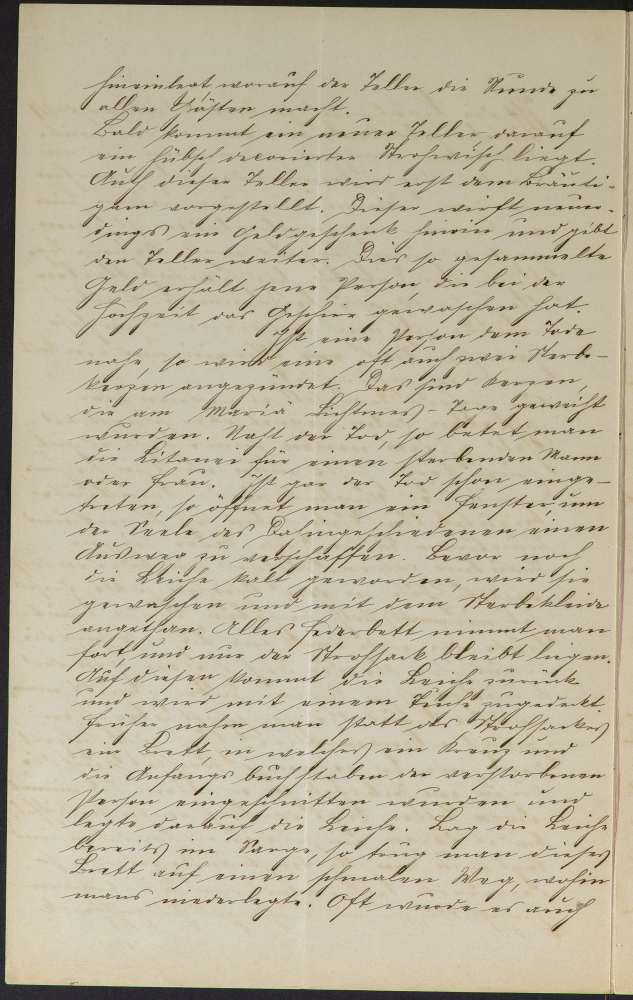 hineinlegt, worauf der Teller die Runde zu
allen Gästen macht.
Bald kommt ein neuer Teller, darauf
ein hübsch decorierter Strohwisch liegt.
Auch dieser Teller wird erst dem Bräuti-
gam vorgestellt. Dieser wirft neuer-
dings ein Geldgeschenk hinein und gibt
den Teller weiter. Dies so gesammelte
Geld erhält jene Person, die bei der
Hochzeit das Geschirr gewaschen hat.
Ist eine Person dem Tode
nahe, so wird eine, oft auch zwei Sterbe-
kerzen angezündet. Das sind Kerzen,
die am Mariä-Lichtmess-Tage geweiht
wurden. Naht der Tod, so betet man
die Litanei für einen sterbenden Mann
oder Frau. Ist gar der Tod schon einge-
treten, so öffnet man ein Fenster, um
der Seele des Dahingeschiedenen einen
Ausweg zu verschaffen. Bevor noch
die Leiche kalt geworden, wird sie
gewaschen und mit dem Sterbekleide
angethan. Alles Federbett nimmt man
fort, und nur der Strohsack bleibt liegen.
Auf diesen kommt die Leiche zurück
und wird mit einem Tuche zugedeckt.
Früher nahm man statt des Strohsackes
ein Brett, in welches ein Kreuz und
die Anfangsbuchstaben der verstorbenen
Person eingeschnitten wurden und
legte darauf die Leiche. Lag die Leiche
bereits im Sarge, so trug man dieses
Brett auf einen schmalen Weg, wohin
mans niederlegte. Oft wurde es auch